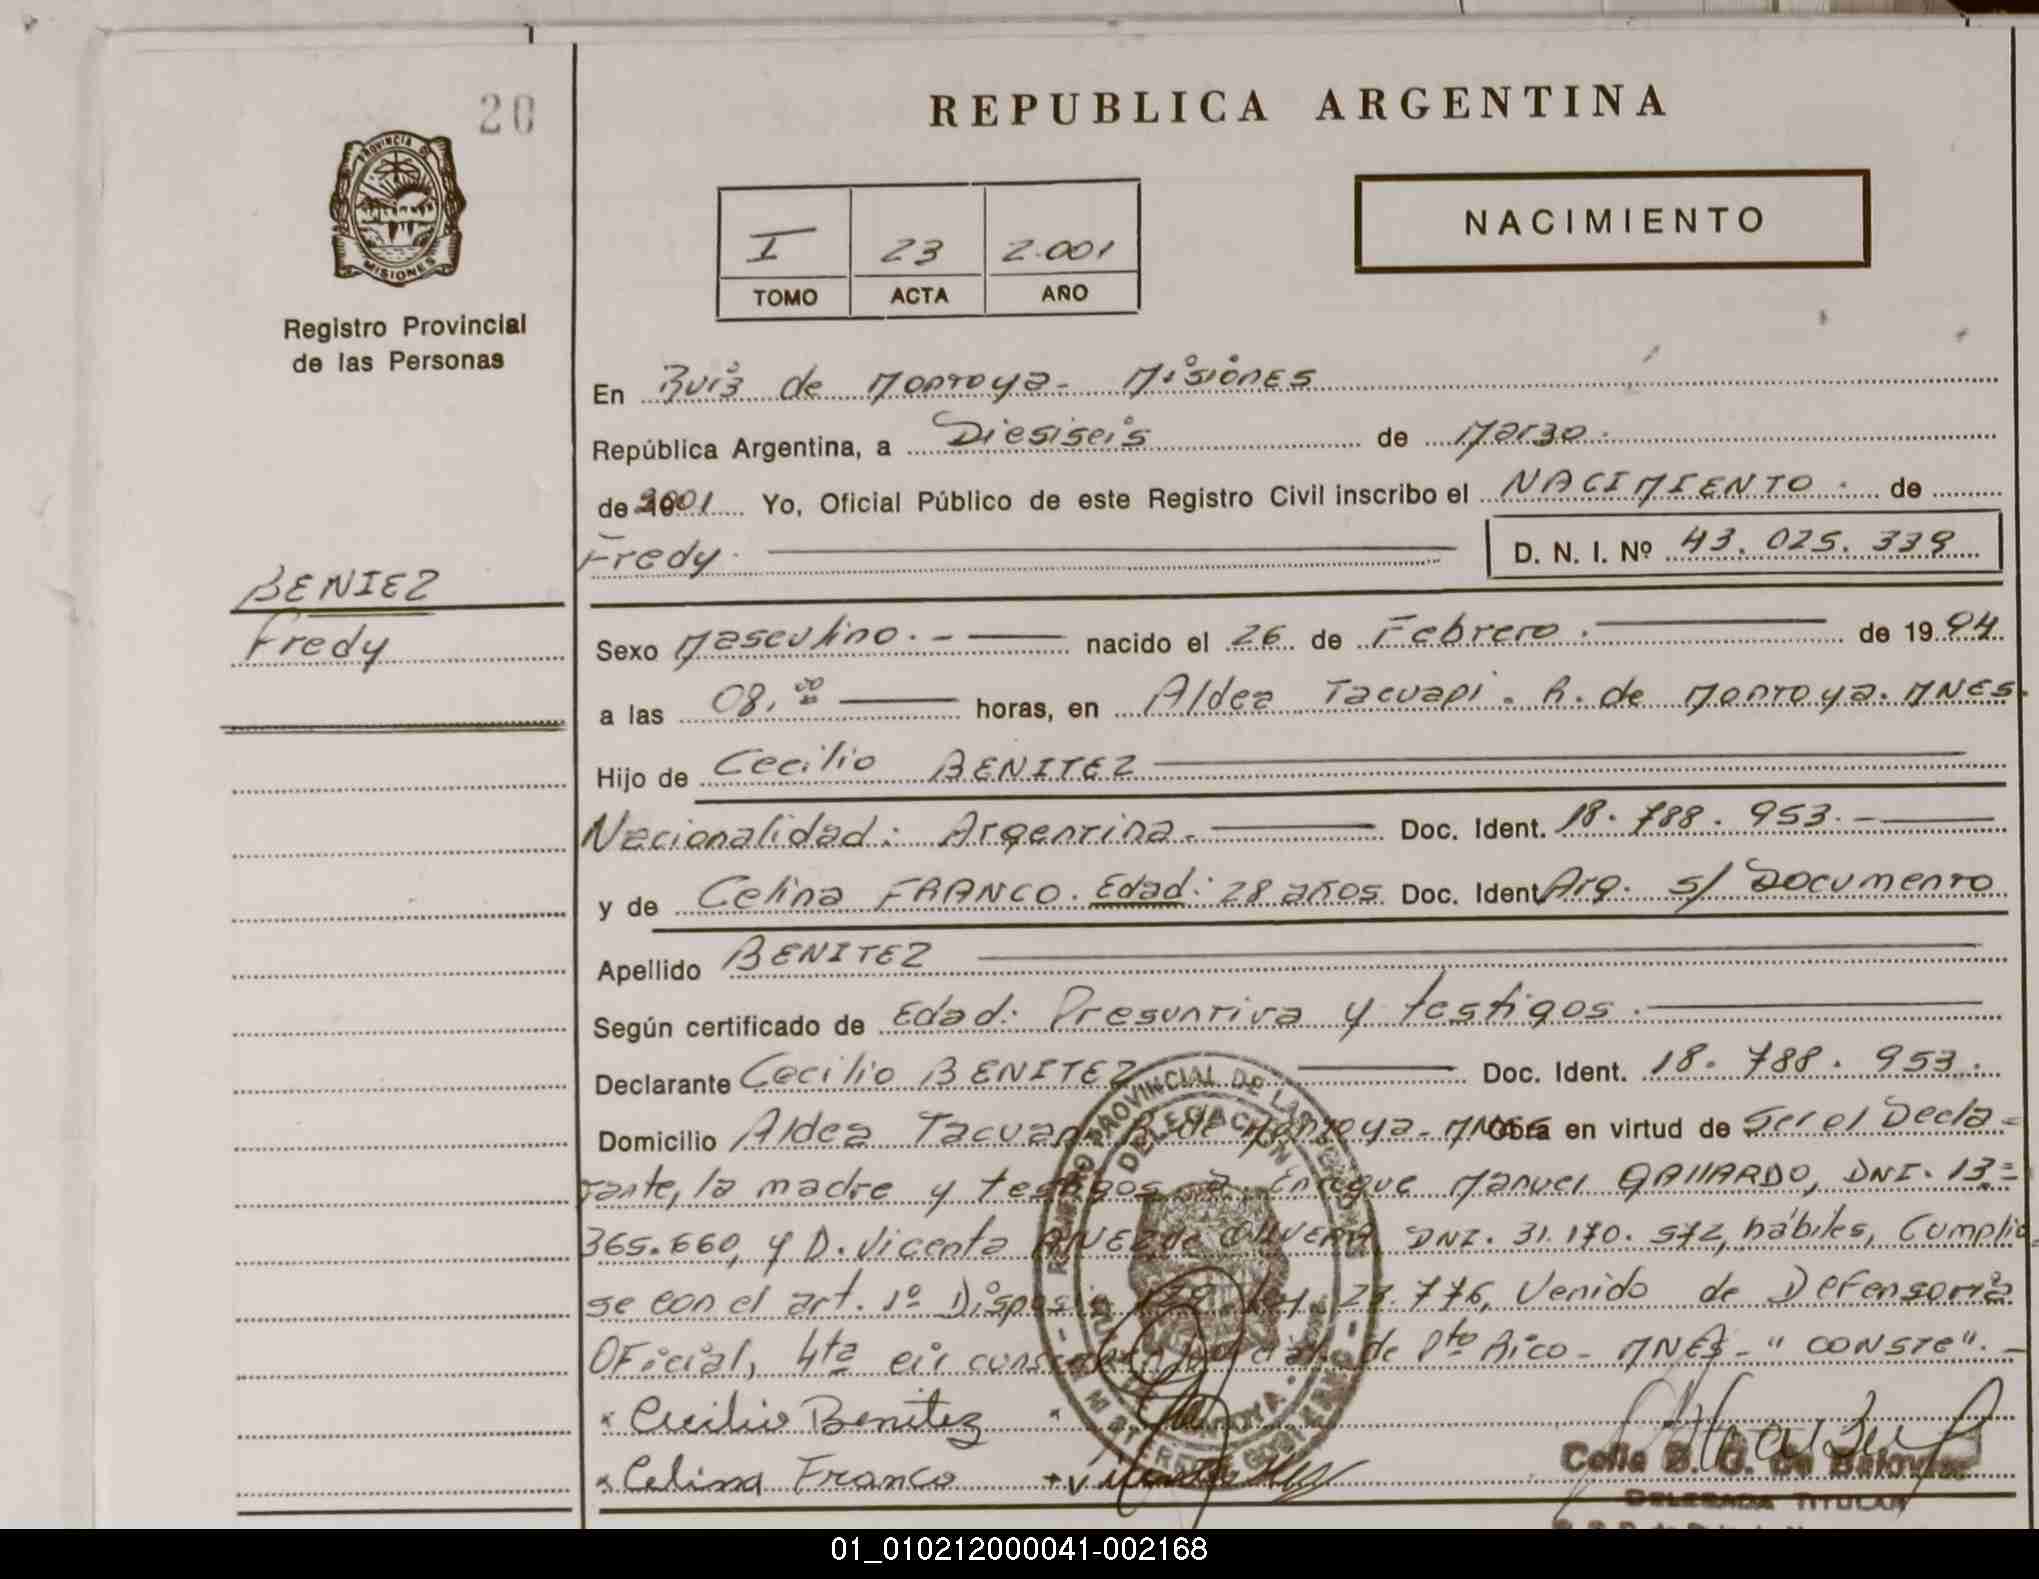 20
REPUBLICA ARGENTINA
PROVINCIA DE
MISIONES
Registro Provincial
de las Personas
I 23 2.001
TOMO ACTA AÑO
NACIMIENTO
En Ruiz de Montoya - Misiones
República Argentina, a Diesiseis de Marzo.
de 2001 Yo, Oficial Público de este Registro Civil inscribo el NACIMIENTO. de
Fredy. D. N. I. Nº 43.025.339
BENIEZ
Fredy
Sexo Masculino. - nacido el 26 de Febrero. de 1994
a las 08,00 horas, en Aldea Tacuapi. R. de Montoya. MNES.
Hijo de Cecilio BENITEZ
Nacionalidad: Argentina. Doc. Ident. 18.788.953. -
y de Celina FRANCO. Edad: 28 años. Doc. Ident Arg. s/ Documento
Apellido BENITEZ
Según certificado de Edad: Presuntiva y testigos.
Declarante Cecilio BENITEZ Doc. Ident. 18.788.953.
Domicilio Aldea Tacuapi R. de Montoya - MNES Obra en virtud de Ser el Decla-
rante, la madre y testigos a Enrique Manuel GALLARDO, DNI. 13.=
365.660, y D. Vicenta de OLIVERA DNI. 31.170.572, hábiles, Cumplio
se con el art. 1º Ley 23.776, Venido de Defensoria
Oficial, 4ta circunscripción de Pto Rico - MNES - "CONSTE". -
x Cecilio Benitez x
x Celina Franco + Vicenta
REGISTRO PROVINCIAL DE LAS PERSONAS
DELEGACION
Celia B. G. de
DELEGADA TITULAR
01_010212000041-002168